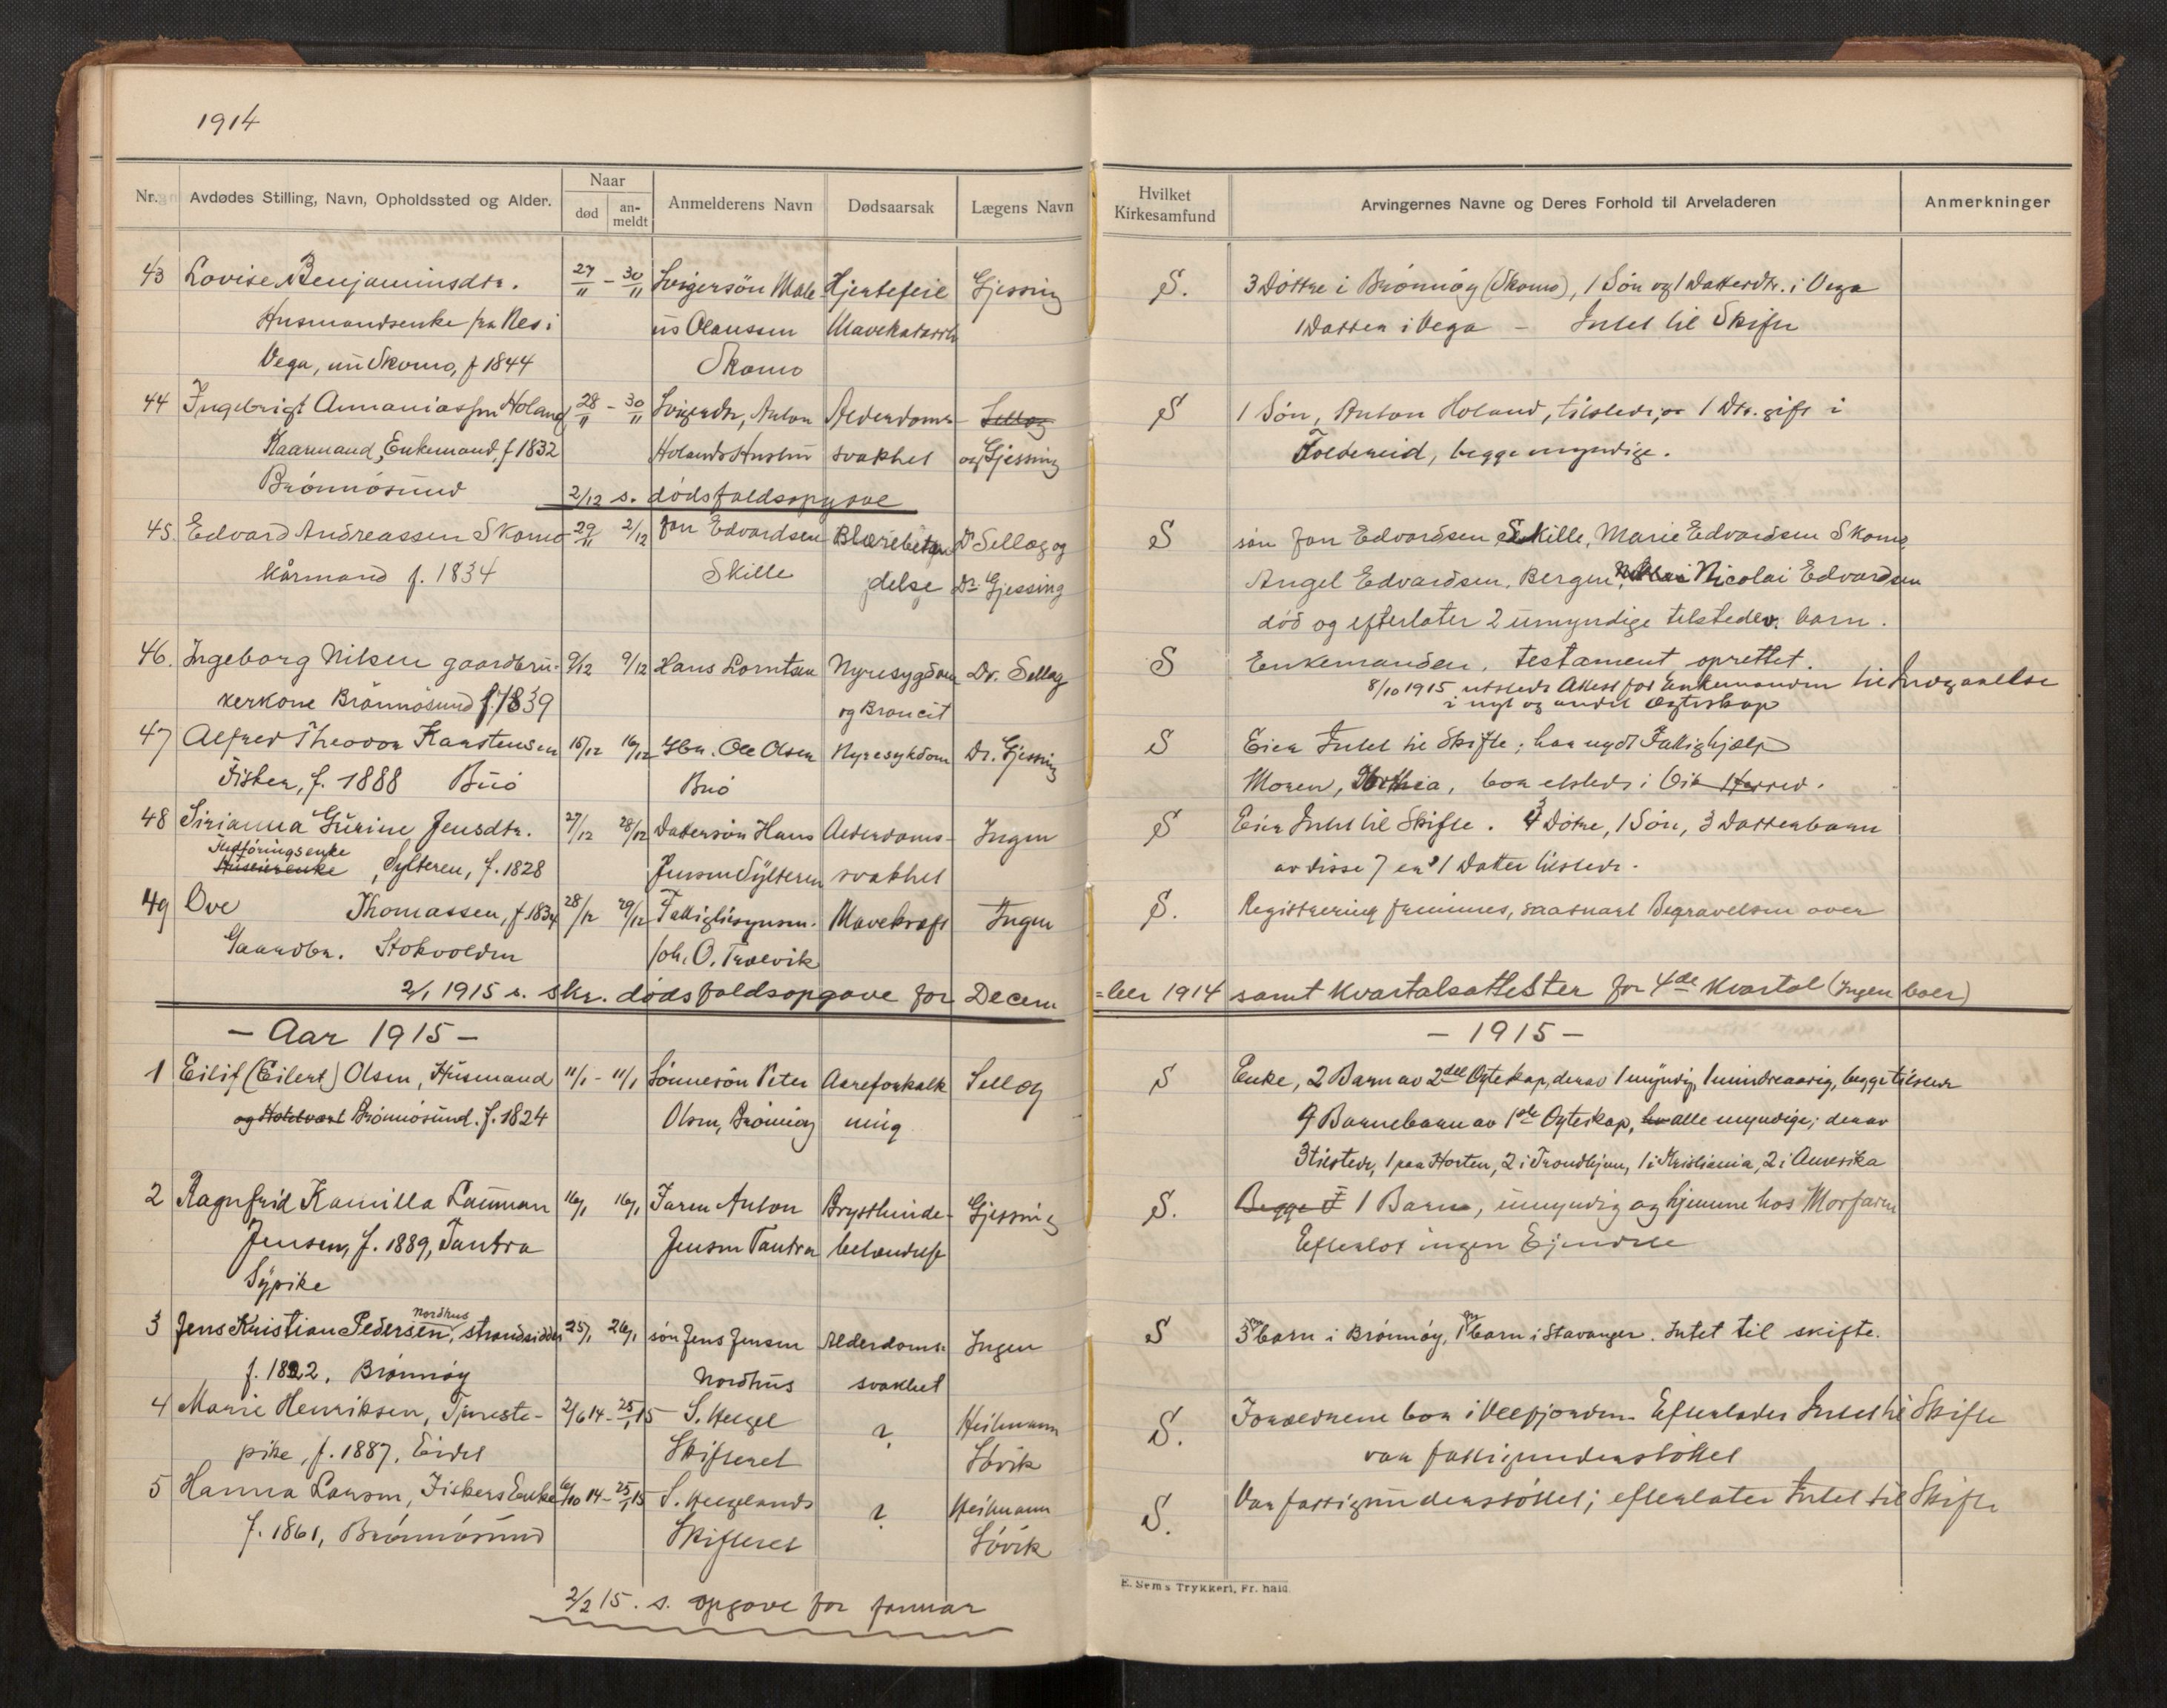 1914
Nr. Avdødes Stilling, Navn, Opholdssted og Alder. Naar død an-meldt Anmelderens Navn Dødsaarsak Lægens Navn
43 Lovise Benjaminsdtr. 27/11 - 30/11 Svigersön Mate Hjertefeil Gjessing
Husmandsenke fra Nes i ūs Olaussen Mavekatarrh
Vega, nu Skomo, f 1844 Skomo
44 Ingebrigt Annaniassen Holand 28/11 - 30/11 Svigerdtr, Anton Alderdoms- Sellæg
Kaarmand, Enkemand, f 1832 Holands Hustru svakhet og Gjessing
Brönnösund 2/12 s. dödsfaldsopgave
45. Edvard Andreassen Skomo 29/11 2/12 Jon Edvardsen Blærebetæn Dr Sellæg og
Kårmand f. 1834 Skille delse Dr. Gjessing
46. Ingeborg Nilsen gaardbru- 9/12 9/12 Hans Lorntsen Nyresygdom Dr. Sellæg
kerkone Brönnösund f. 1839 og Broncit
47 Alfred Theodor Karstensen 15/12 16/12 Gbr. Ole Olsen Nyresykdom Dr. Gjessing
Fisker, f. 1888 Buö Buö
48 Sirianna Gurine Jensdtr. 27/12 28/12 Dattersön Hans Alderdoms- Ingen
Indföringsenke
Huseierenke, Sylteren, f. 1828 Jensen Sylteren svakhet
49 Ove Thomassen, f. 1834 28/12 29/12 Fattigtilsynsm. Mavekræft Ingen
Gaardbr. Stokvolden Joh. O. Trælvik
2/1 1915 s. skr. dödsfaldsopgave for Decem
- Aar 1915 -
1 Eilif (Eilert) Olsen, Husmand 11/1 - 11/1 Sönnesön Peter Aareforkalk Sellæg
og Hotelvært Brönnösund. f. 1824 Olsen, Brönnöy ning
2 Ragnfrid Kamilla Lauman 16/1 16/1 Faren Anton Brysthinde- Gjessing
Jensen, f. 1889, Tautra Jensen Tautra betændelse
Sypike
3 Jens Kristian Pedersen Nordhus, strandsidder 25/1 26/1 sön Jens Jensen Alderdoms- Ingen
f. 1822, Brönnöy Nordhus svakhet
4 Marie Henriksen, Tjeneste- 2/6 14 - 25/1 15 S. Helgel ? Heilmann
pike, f. 1887, Eidet Skifteret Sövik
5 Hanna Larsen, Fiskers Enke 6/10 14 - 25/1 15 S. Helgelands ? Heilmann
f. 1861, Brönnösund Skifteret Sövik
2/2 15. s. opgave for januar
Hvilket Kirkesamfund Arvingernes Navne og Deres Forhold til Arveladeren Anmerkninger
S. 3 Döttre i Brönnöy (Skomo), 1 Sön og 1 Datterdtr. i Vega
1 Datter i Vega - Intet til Skifte
S 1 Sön, Anton Holand, tilstede, og 1 Dtr. gift i
Foldereid, begge myndige.
S sön Jon Edvardsen Skille, Marie Edvardsen Skomo,
Angel Edvardsen, Bergen, Nicolai Edvardsen
död og efterlater 2 umyndige tilstedev. barn.
S Enkemanden. Testament oprettet.
8/10 1915 utstedt Attest for Enkemanden til Indgaaelse
i nyt og andet Egteskap
S Eier Intet til Skifte; har nydt Fattighjælp
Moren, Dorthea, bor etsteds i Vik Herred.
S Eier Intet til Skifte. 3 Dötre, 1 Sön, 3 Datterbarn
av disse 7 er 1 Datter tilstede.
S. Registrering fremmes, saasnart Begravelsen over
=ber 1914 samt Kvartalsattester for 4de Kvartal (Ingen boer)
- 1915 -
S Enke, 2 Barn av 2det Egteskap, derav 1 myndig, 1 mindreaarig, begge tilstede
9 Barnebarn av 1ste Egteskap, alle myndige; derav
3 tilstede, 1 paa Horten, 2 i Trondhjem, 1 i Kristiania, 2 i Amerika
S. Begge F 1 Barn, umyndig og hjemme hos Morfaren
Efterlot ingen Ejendele
S 3 m barn i Brönnöy, 1 m barn i Stavanger. Intet til skifte.
S. Forældrene bor i Velfjorden. Efterlader Intet til Skifte
var fattigunderstöttet
S. Var fattigunderstöttet; efterlater Intet til Skifte
E. Sems Trykkeri, Fr. hald